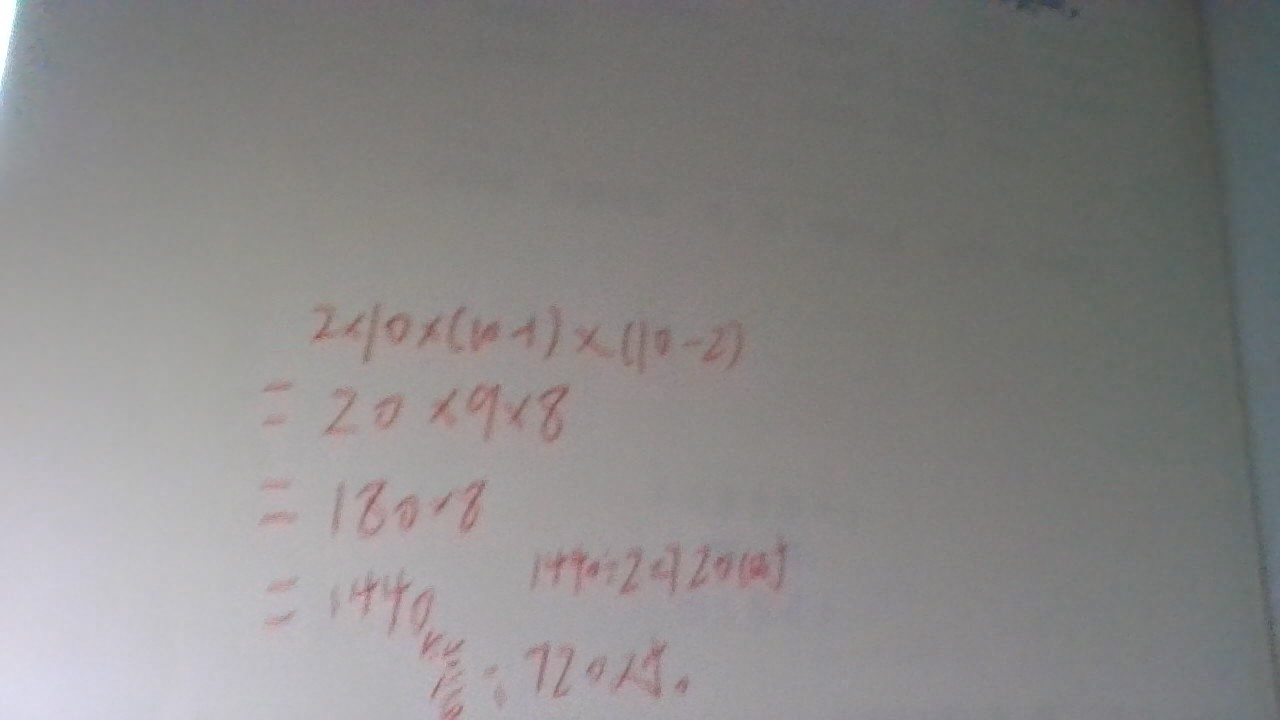 2×10×(10-1)×(10-2)
= 20×9×8
= 180×8
= 1440
1440÷2=720(次)
: 720次。